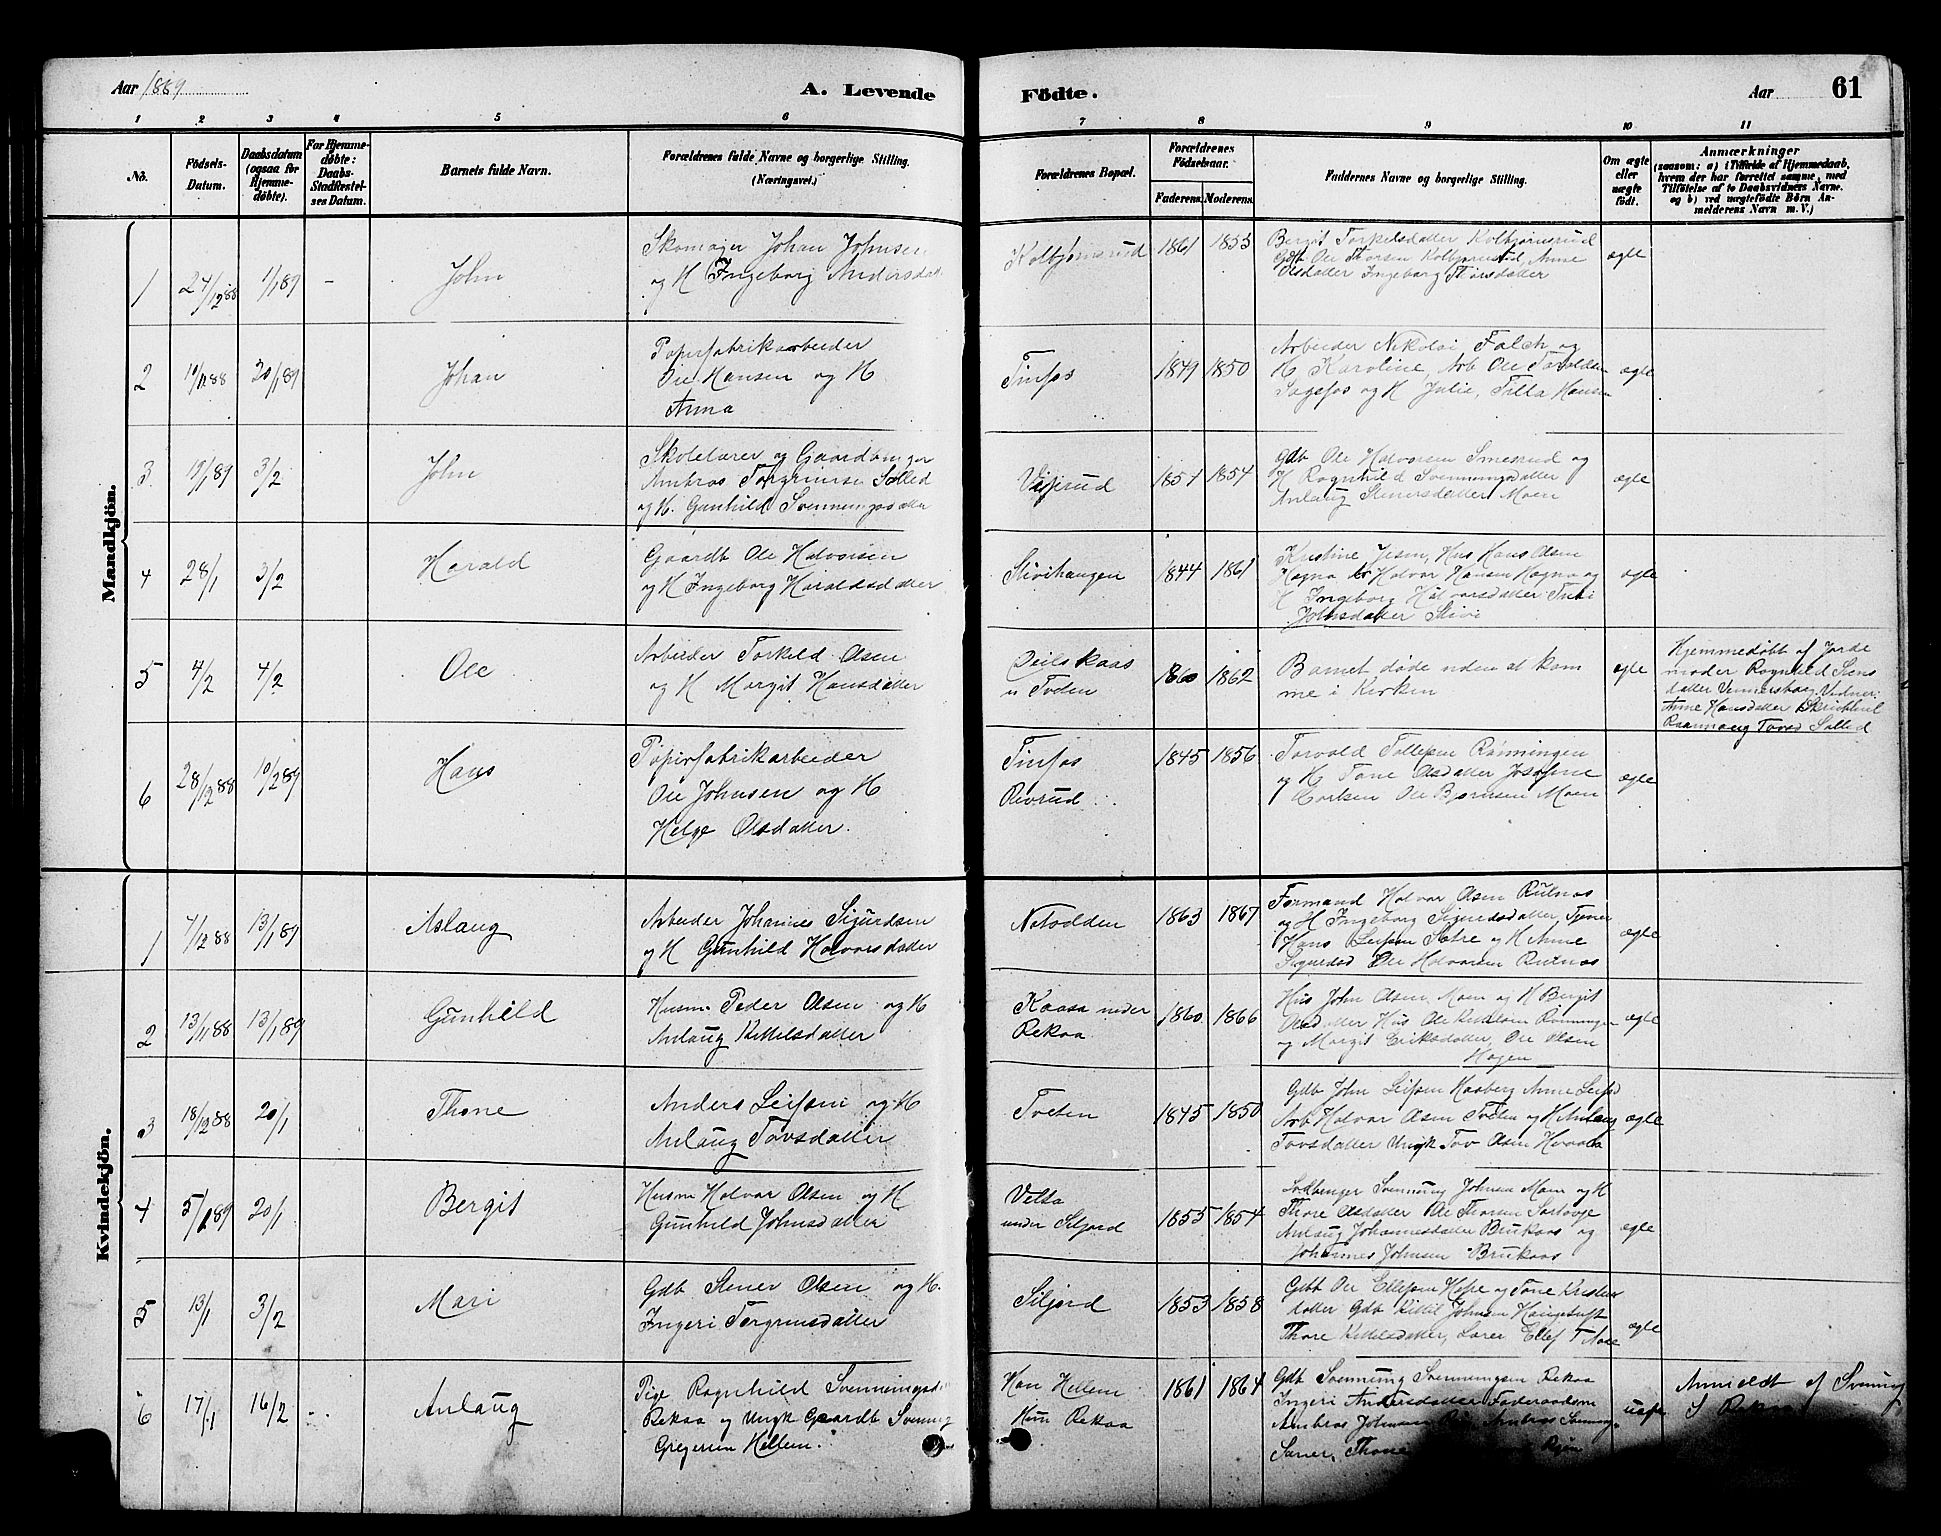 Aar 1889
A. Levende
Födte.
Aar
61
1 2 3 4 5 6 7 8 9 10 11
No.
Födsels-Datum.
Daabsdatum (ogsaa for Hjemme-döbte).
For Hjemme-döbte: Daabs-Stadfæstel-ses Datum.
Barnets fulde Navn.
Forældrenes fulde Navne og borgerlige Stilling.
(Næringsvei.)
Forældrenes Bopæl.
Forældrenes Födselsaar.
Faderens. Moderens.
Faddernes Navne og borgerlige Stilling.
Om ægte eller uægte födt.
Anmærkninger
(saasom: a) i Tilfælde af Hjemmedaab,
hvem der har forrettet samme, med
Tilföielse af to Daabsvidners Navne.
og b) ved uægtefödte Börn An-
melderens Navn m. V.)
Mandkjön.
1 27/12 88 1/1 89 - John
Skomager Johan Johnsen
og H Ingeborg Andersdatter
Kolbjørnsrud 1861 1853
Bergit Torkelsdatter Kolbjørnsrud
Gdb Ole Thorsen Kolbjørnsrud Anne
Olsdatter Ingeborg Thorsdatter
ægte
2 19/11 88 20/1 89 Johan
Papirfabrikarbeider
Ole Hansen og H
Anna
Tinfos 1849 1850
Arbeider Nikolai Falch og
H Karoline, Arb Ole
Sagafos og H Julie, Tilla Hansen
ægte
3 19/1 89 3/2 John
Skolelærer og Gaardbruger
Ambros Solled
og H. Gunhild Svenningsdatter
1854 1854
Gdb Ole Halvorsen Smerud og
H Rognhild Svenningsdatter
Anlaug Steinersdatter Moen
ægte
4 28/1 3/2 Harald
Gaardb Ole Halvorsen
og H Ingeborg Haraldsdatter
Stivihaugen 1844 1861
Kristine Hus Hans Olsen
Hogna Halvor Hansen Hogna og
H Ingeborg Halvorsdatter
Johnsdatter Stivi
ægte
5 4/2 4/2 Ole
Arbeider Torkild Olsen
og H Margit Hansdatter
u Tveten 1860 1862
Barnet døde uden at kom
me i Kirken
ægte
Hjemmedøbt af Jorde
moder Rognhild Stens
datter Vidner:
Anne Hansdatter
Solled
6 28/12 88 10/2 89 Hans
Papirfabrikarbeider
Ole Johnsen og H
Helge Olsdatter.
Tinfos
1845 1856
Torvald Tollefsen Rønningen
og H Tone Olsdatter Josefine
Ole Bjørnsen Moen
ægte
Kvindekjön.
1 7/12 88 13/1 89 Aslaug
Arbeider Johannes Sigurdsen
og H Gunhild Halvorsdatter
Notodden 1863 1867
Formand Halvor Olsen Rutnos
og H Ingeborg Sigurdsdatter, Tjener
Hans Leifsen Sætre og H Anne
Sigurdsd Ole Halvorsen Rutnos
ægte
2 13/11 88 13/1 89 Gunhild
Husm Peder Olsen og H
Anlaug Kittelsdatter
Kaasa under
Rekaa 1860 1866
Hus John Olsen Moen og H Bergit
Olsdatter Hus Ole Kittelsen Rønningen
og Margit Eriksdatter, Ole Olsen
Hagen
ægte
3 18/12 88 20/1 Thone
Anders Leifsen og H
Anlaug Tovsdatter
Tveten 1845 1850
Gdb John Leifsen Haaberg Anne Leifsd
Arb Halvor Olsen Tveten og H Anlaug
Tovsdatter Ungk Tov Olsen
ægte
4 5/1 89 20/1 Bergit
Husm Halvor Olsen og H
Gunhild Johnsdatter
under Siljord 1855 1854
Svennung Johnsen Moen og H
Thore Olsdatter Ole Thorsen
Anlaug Johannesdatter Brukaas og
Johannes Johnsen Brukaas
ægte
5 13/1 3/2 Mari
Gdb Stener Olsen og H.
Ingeri Torgrimsdatter
Siljord 1853 1858
Gdb Ole Ellefsen og Tone Kristens
datter Gdb Kittil Johnsen Haugetuft
Thore Kittelsdatter, Lærer Ellef
ægte
6 17/1 16/2 Anlaug
Pige Rognhild Svenningsdr
Rekaa og Ungk Gaardb Svennung
Gregersen Hellem.
Han Hellem
Hun Rekaa 1861 1864
Gdb Svennung Svenningsen Rekaa
Ingeri Andersdatter Føderaadsm
Ambros Johnsen Ambros
Thone
uægte
Anmeldt af Svennung
S Rekaa